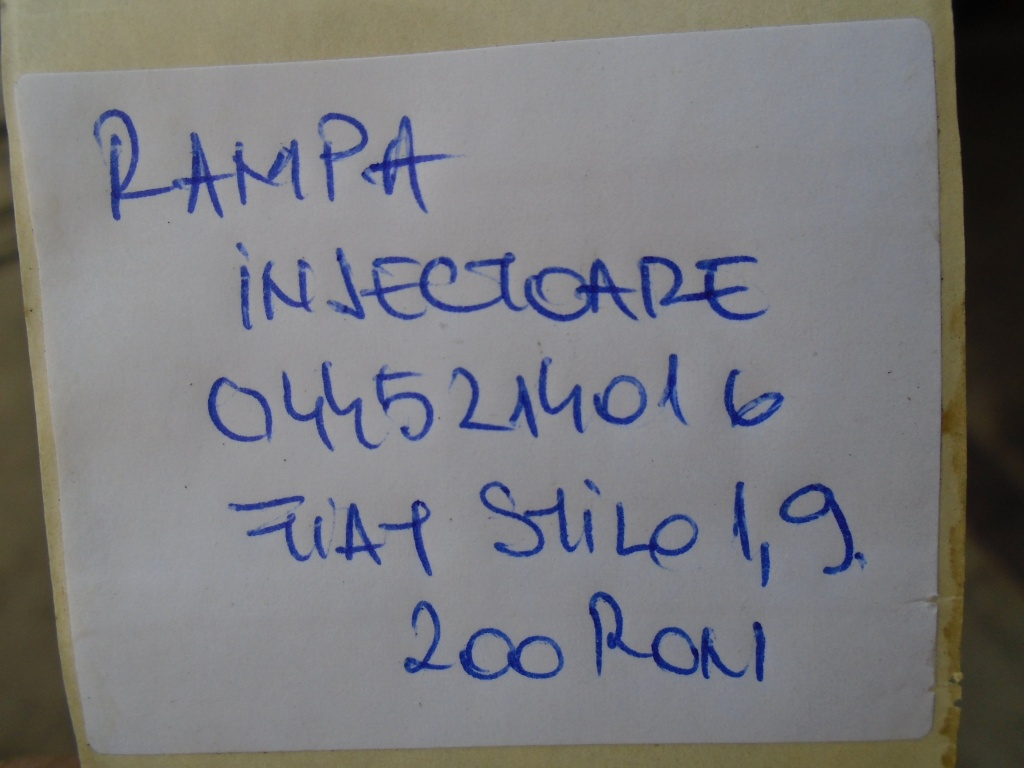 RAMPA
INJECTOARE
0445214016
FIAT STILO 1,9.
200 RONI